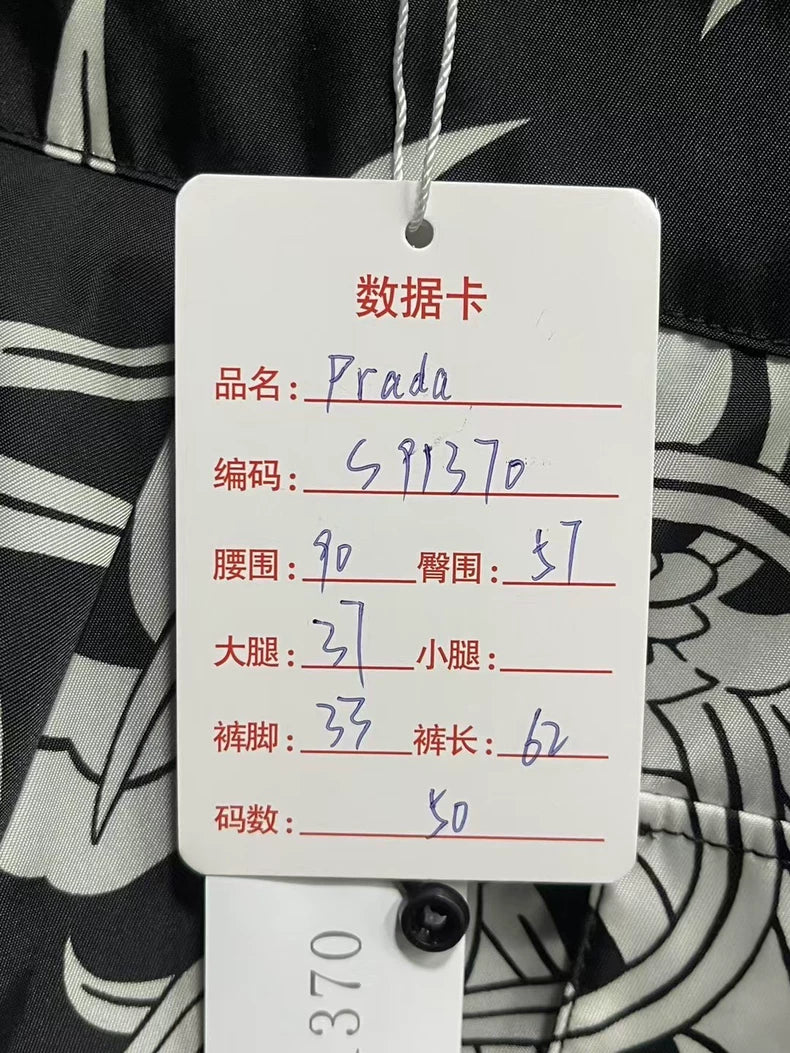 数据卡
品名: Prada
编码: S91370
腰围: 90 臀围: 57
大腿: 37 小腿:
裤脚: 33 裤长: 62
码数: 50
370